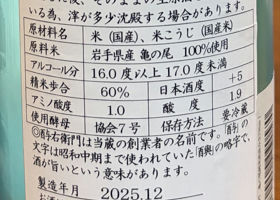 いる為、滓が多少沈殿する場合があります。
原材料名 米（国産）、米こうじ（国産米）
原料米 岩手県産 亀の尾 100%使用
アルコール分 16.0度以上17.0度未満
精米歩合 60% 日本酒度 +5
アミノ酸度 1.0 酸度 1.9
使用酵母 協会7号 保存方法 要冷蔵
◎酉与右衛門は当蔵の創業者の名前です。
文字は昭和中期まで使われていた「酉興」の略字で、
酒が旨いという意味があります。
製造年月 2025.12